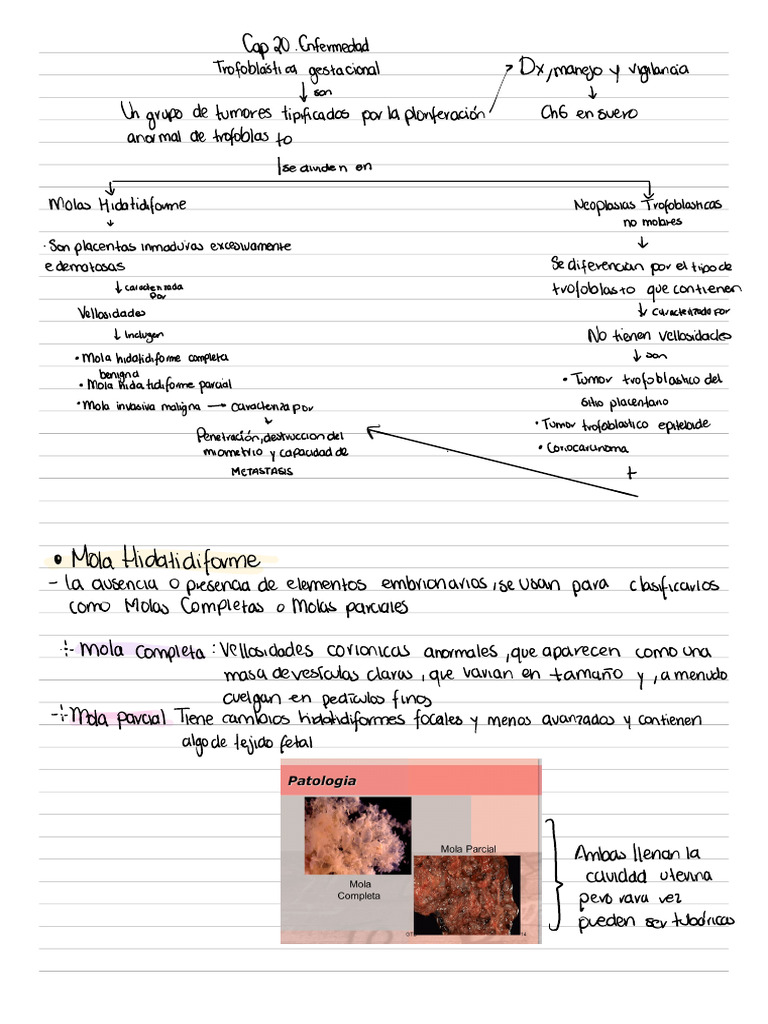 Cap 20. Enfermedad
Trofoblástica gestacional
son
Un grupo de tumores tipificados por la proliferación
anormal de trofoblas to
Dx, manejo y vigilancia
ChG en suero
se dividen en
Molas Hidatidiforme
· Son placentas inmaduras excesivamente
edematosas
caracterizada
por
Vellosidades
Incluyen
• Mola hidatidiforme completa
benigna
• Mola hidatidiforme parcial
• Mola invasiva maligna → caracteriza por
Penetración, destruccion del
miometrio y capacidad de
METASTASIS
Neoplasias Trofoblasticas
no molares
Se diferencian por el tipo de
trofoblasto que contienen
Caracterizado por
No tienen vellosidades
son
• Tumor trofoblastico del
sitio placentario
• Tumor trofoblastico epiteloide
• Coriocarcinoma
+
• Mola Hidatidiforme
- La ausencia o presencia de elementos embrionarios, se usan para clasificarlos
como Molas Completas o Molas parciales
Mola completa : Vellosidades corionicas anormales, que aparecen como una
masa de vesículas claras, que varian en tamaño y, a menudo
cuelgan en pedículos finos
Mola parcial Tiene cambios hidatidiformes focales y menos avanzados y contienen
algo de tejido fetal
Patologia
Mola
Completa
Mola Parcial
14
Ambas llenan la
cavidad uterina
pero rara vez
pueden ser tubáricas